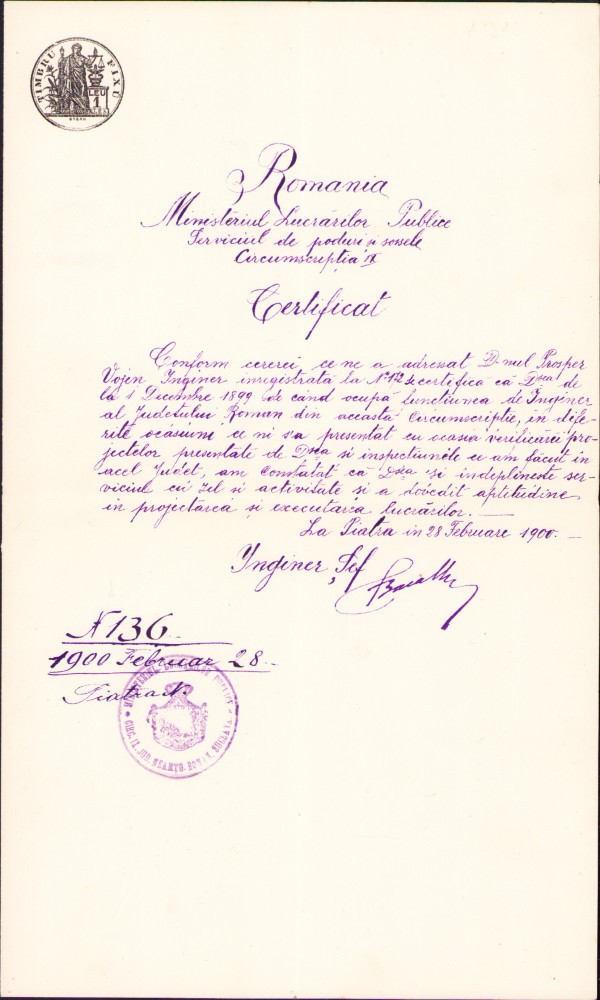 TIMBRU FIXU
LEU
1
Romania
Ministeriul Lucrărilor Publice
Serviciul de poduri și sosele
Circumscripția IX
Certificat
Conform cererei ce ne a adresat D-nul Prosper
Vojen Inginer inregistrată la No 172 se certifica că Dsa de
la 1 Decembre 1899 de cand ocupă functiunea de Inginer
al Judetului Roman din aceasta Circumscriptie, in dife-
rite ocasiuni ce ni s'a presentat cu ocasia verificărei pro-
jectelor presentate de Dsea si inspectiunile ce am făcut in
acel Judet, am Constatat că Dsea și indeplineste ser-
viciul cu zel si activitate și a dovedit aptitudine
in projectarea și executarea lucrărilor. —
La Piatra in 28 Februare 1900. —
Inginer Șef
N 136.
1900 Februar 28.
Piatra N.
MINISTERUL LUCRARILOR PUBLICE
CIRC. IX. JUD. NEAMTU. ROMAN. SUCEAVA